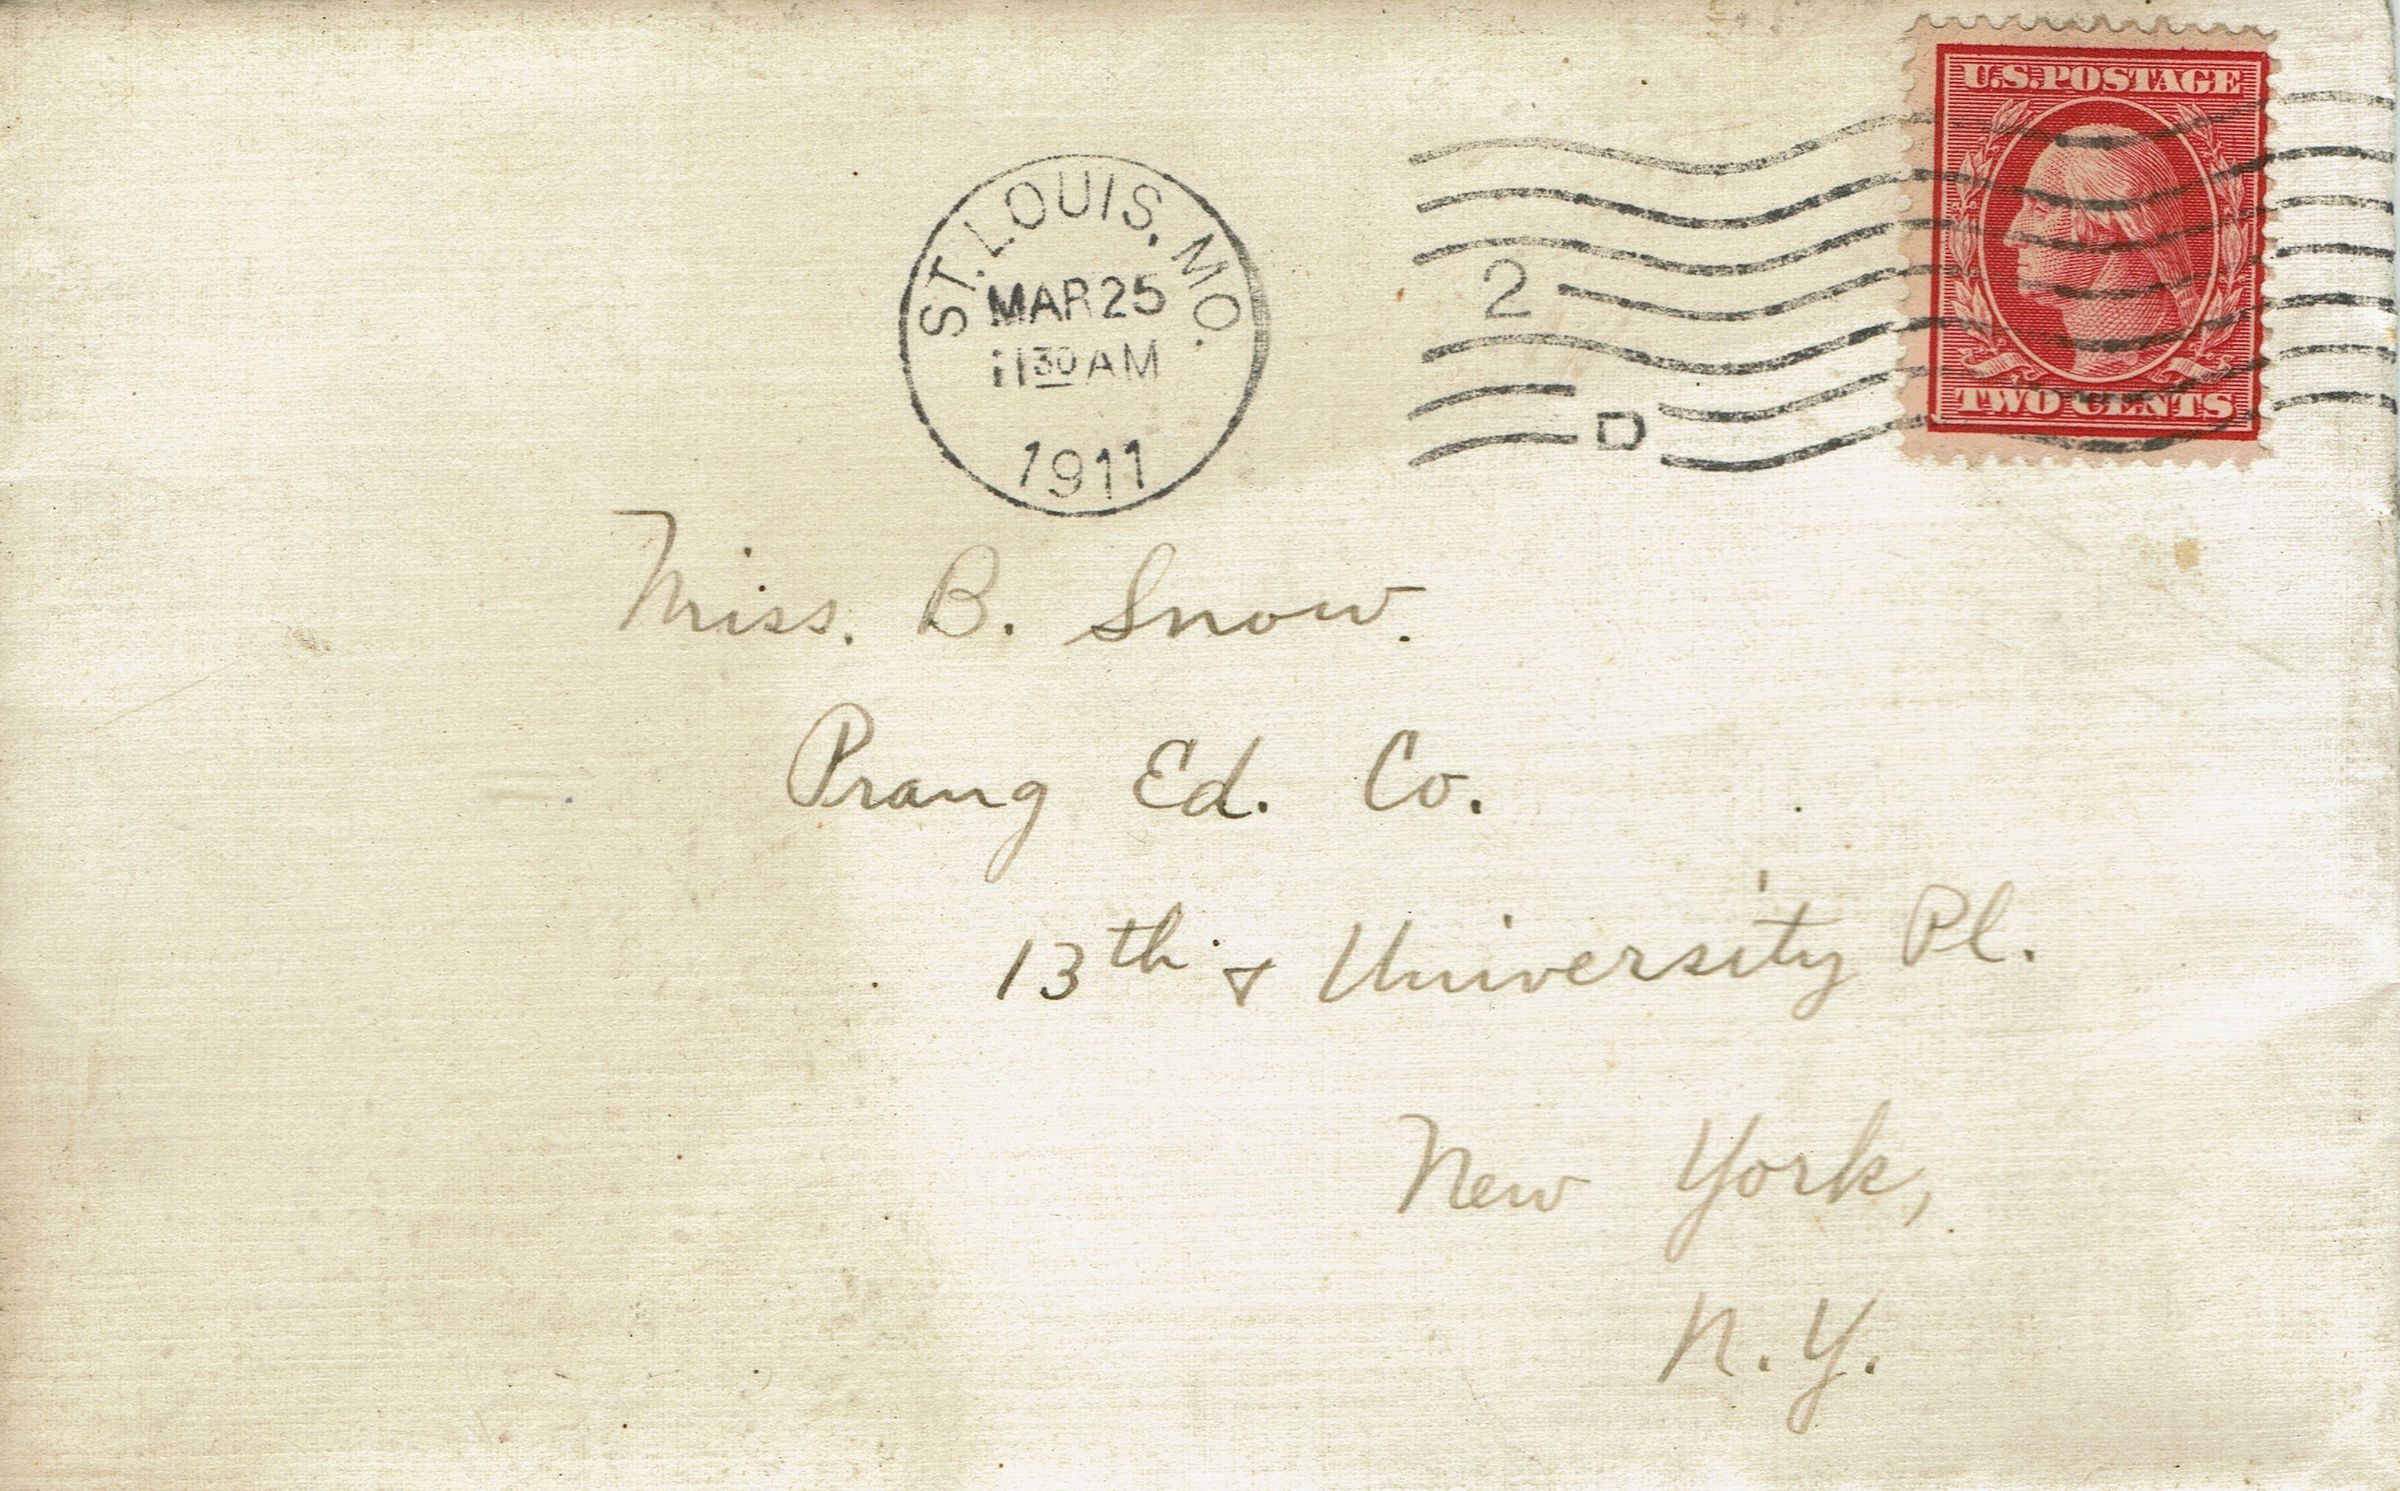 U.S. POSTAGE
ST. LOUIS, MO.
MAR 25
11 30 AM
1911
2
D
TWO CENTS
Miss. B. Snow.
Prang Ed. Co.
13th & University Pl.
New York,
N.Y.